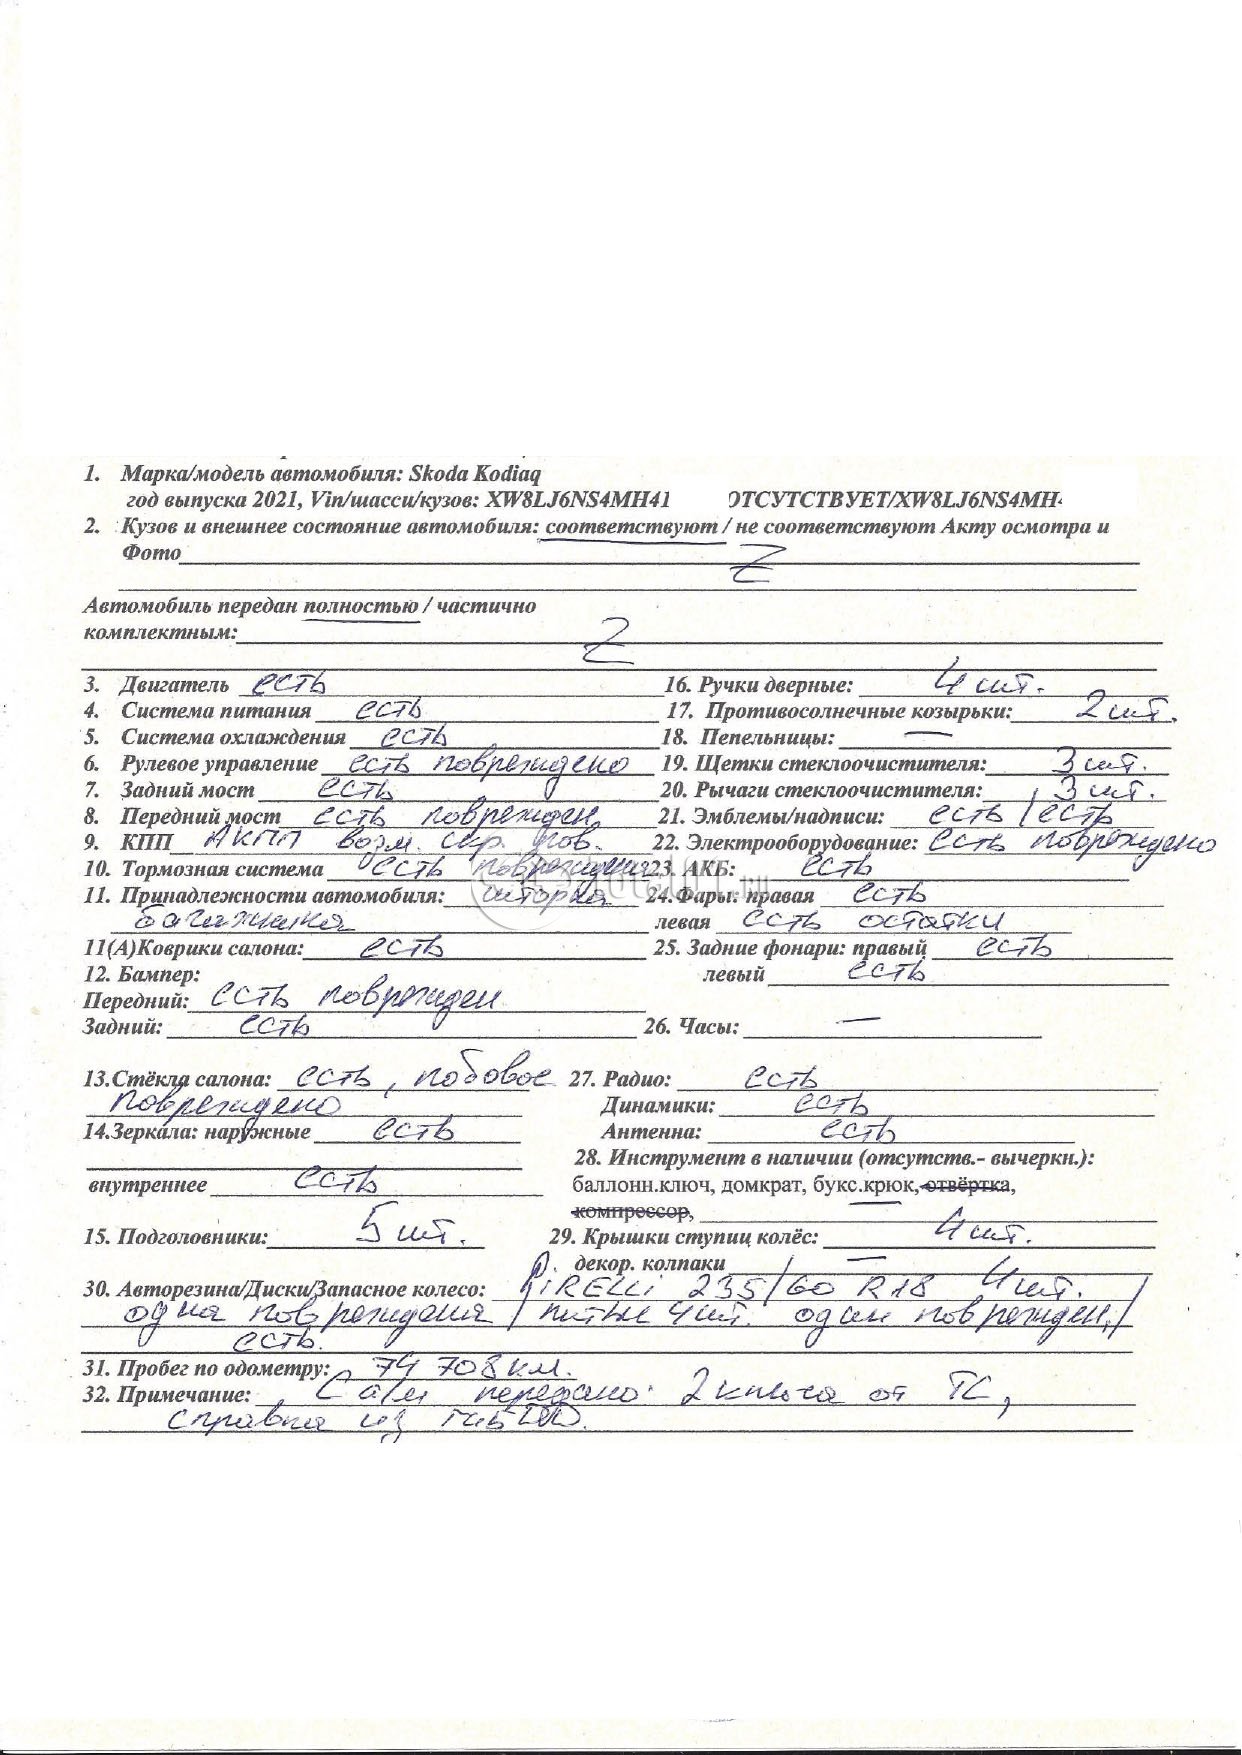 1. Марка/модель автомобиля: Skoda Kodiaq
год выпуска 2021, Vin/шасси/кузов: XW8LJ6NS4MH41 ОТСУТСТВУЕТ/XW8LJ6NS4MH4
2. Кузов и внешнее состояние автомобиля: соответствуют / не соответствуют Акту осмотра и
Фото Z
Автомобиль передан полностью / частично
комплектным: Z
3. Двигатель есть 16. Ручки дверные: 4 шт.
4. Система питания есть 17. Противосолнечные козырьки: 2 шт.
5. Система охлаждения есть 18. Пепельницы: —
6. Рулевое управление есть повреждено 19. Щетки стеклоочистителя: 3 шт.
7. Задний мост есть 20. Рычаги стеклоочистителя: 3 шт.
8. Передний мост есть поврежден 21. Эмблемы/надписи: есть / есть
9. КПП АКПП возм. скр. пов. 22. Электрооборудование: есть повреждено
10. Тормозная система есть повреждена 23. АКБ: есть
11. Принадлежности автомобиля: шторка 24. Фары: правая есть
багажника левая есть остатки
11(А)Коврики салона: есть 25. Задние фонари: правый есть
12. Бампер: левый есть
Передний: есть поврежден
Задний: есть 26. Часы: —
13.Стёкла салона: есть, лобовое 27. Радио: есть
повреждено Динамики: есть
14.Зеркала: наружные есть Антенна: есть
28. Инструмент в наличии (отсутств.- вычеркн.):
внутреннее есть баллонн.ключ, домкрат, букс.крюк, отвёртка,
компрессор, —
15. Подголовники: 5 шт. 29. Крышки ступиц колёс: 4 шт.
декор. колпаки —
30. Авторезина/Диски/Запасное колесо: PIRELLI 235/60 R18 4 шт.
одна повреждена / литые 4 шт. один поврежден /
есть.
31. Пробег по одометру: 74 708 км.
32. Примечание: С а/м передано: 2 ключа от ТС,
справка из ГИБДД.